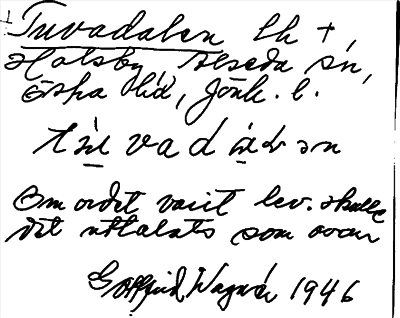 Tuvadalen lh †,
Holsby Alseda sn,
Östra hd, Jönk. l.
Om ordet varit lev. skulle
det uttalats som ovan
Gottfrid Wagnér 1946